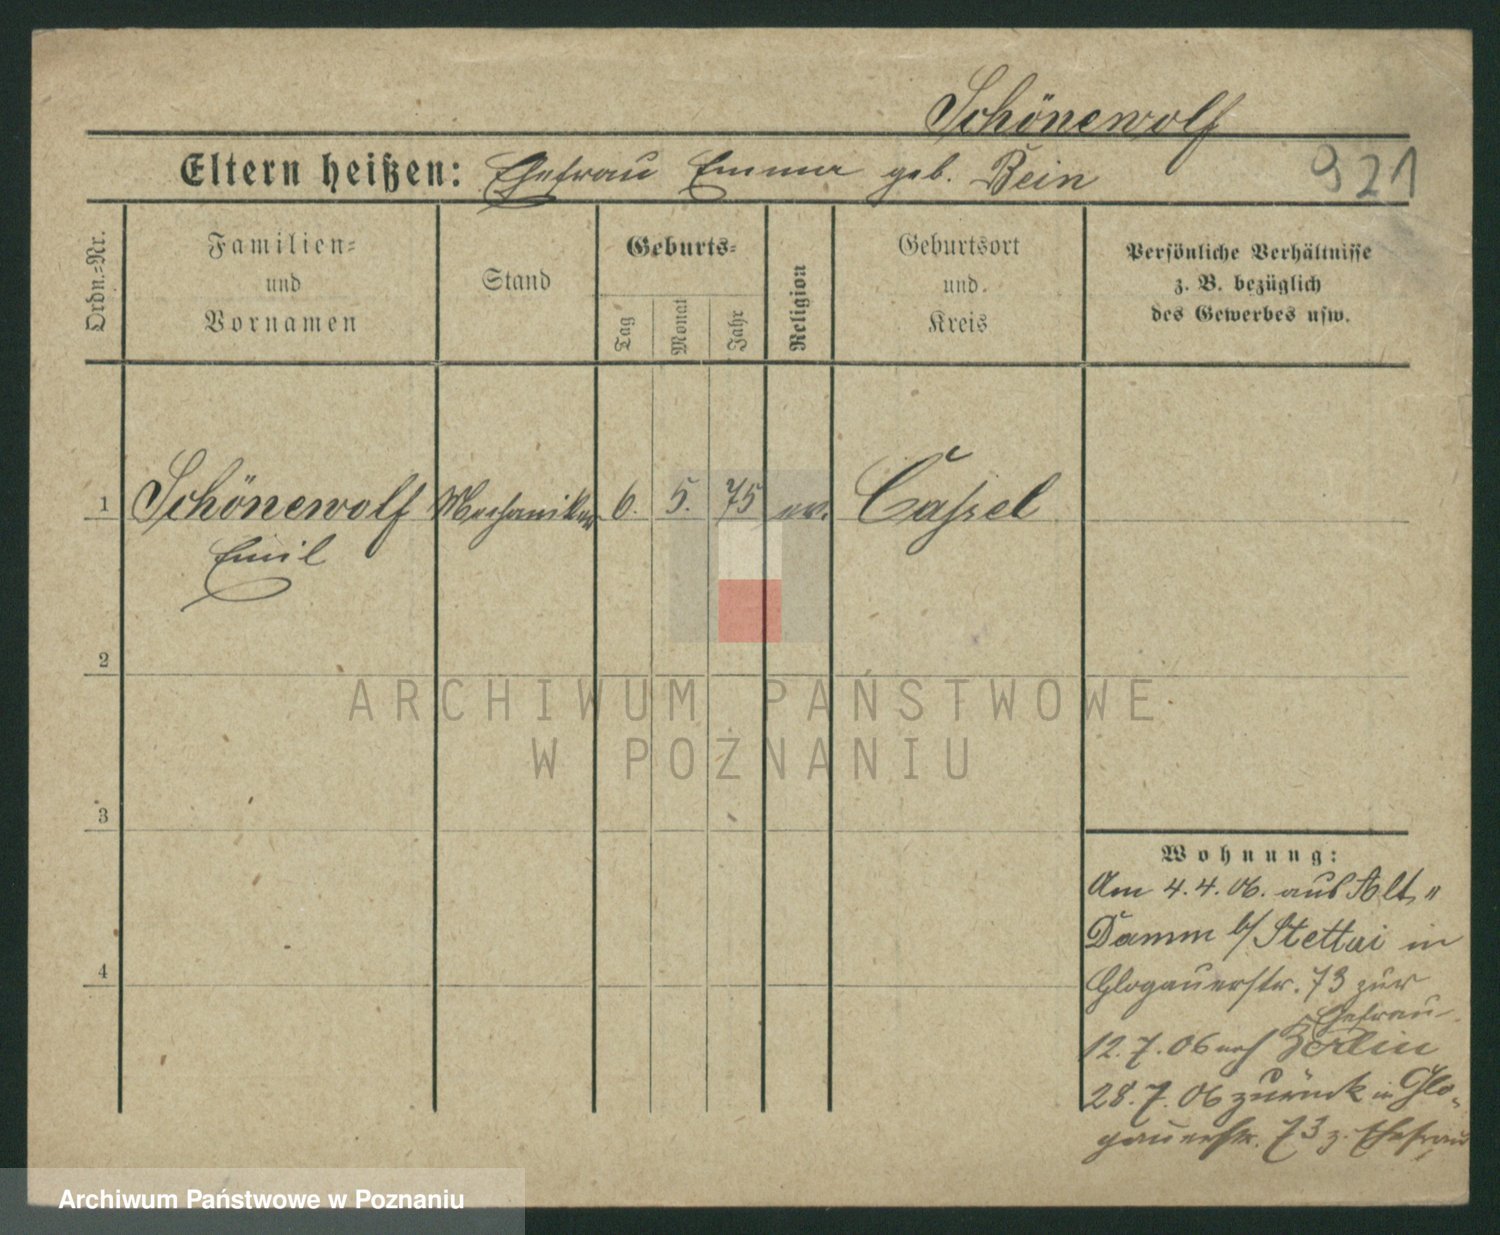 Schönewolf
Eltern heißen: Ehefrau Emma geb. Bein
921
Ordn.=Nr.
Familien=
und
Vornamen
Stand
Geburts=
Tag
Monat
Jahr
Religion
Geburtsort
und
Kreis
Persönliche Verhältnisse
z. B. bezüglich
des Gewerbes usw.
1 Schönewolf Mechaniker 6. 5. 75 ev. Cassel
Emil
2
ARCHIWUM PAŃSTWOWE
W POZNANIU
3
4
Wohnung:
Am 4.4.06. aus Alt „
Damm b/ Stettin in
Glogauerstr. 73 zur
Ehefrau
12.7.06 nach Berlin
28.7.06 zurück in Glo„
gauerstr. 73 z. Ehefrau
Archiwum Państwowe w Poznaniu